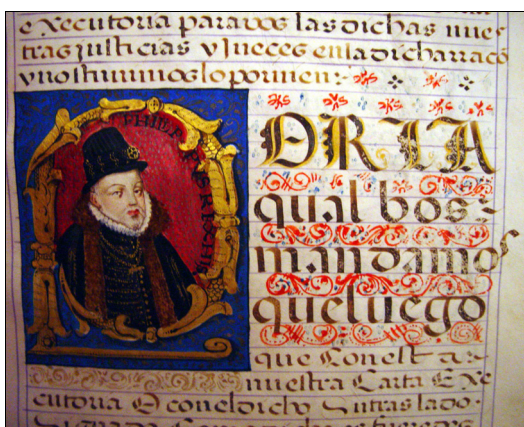 executoria para vos las dichas nues
tras justicias y jueces en la dicha rraço
vnos tuuimos lo por uien
PORLA
qual bos
mandamos
que luego
que Con esta
nuestra Carta Exe
cutoria O con el dicho Su tras lado